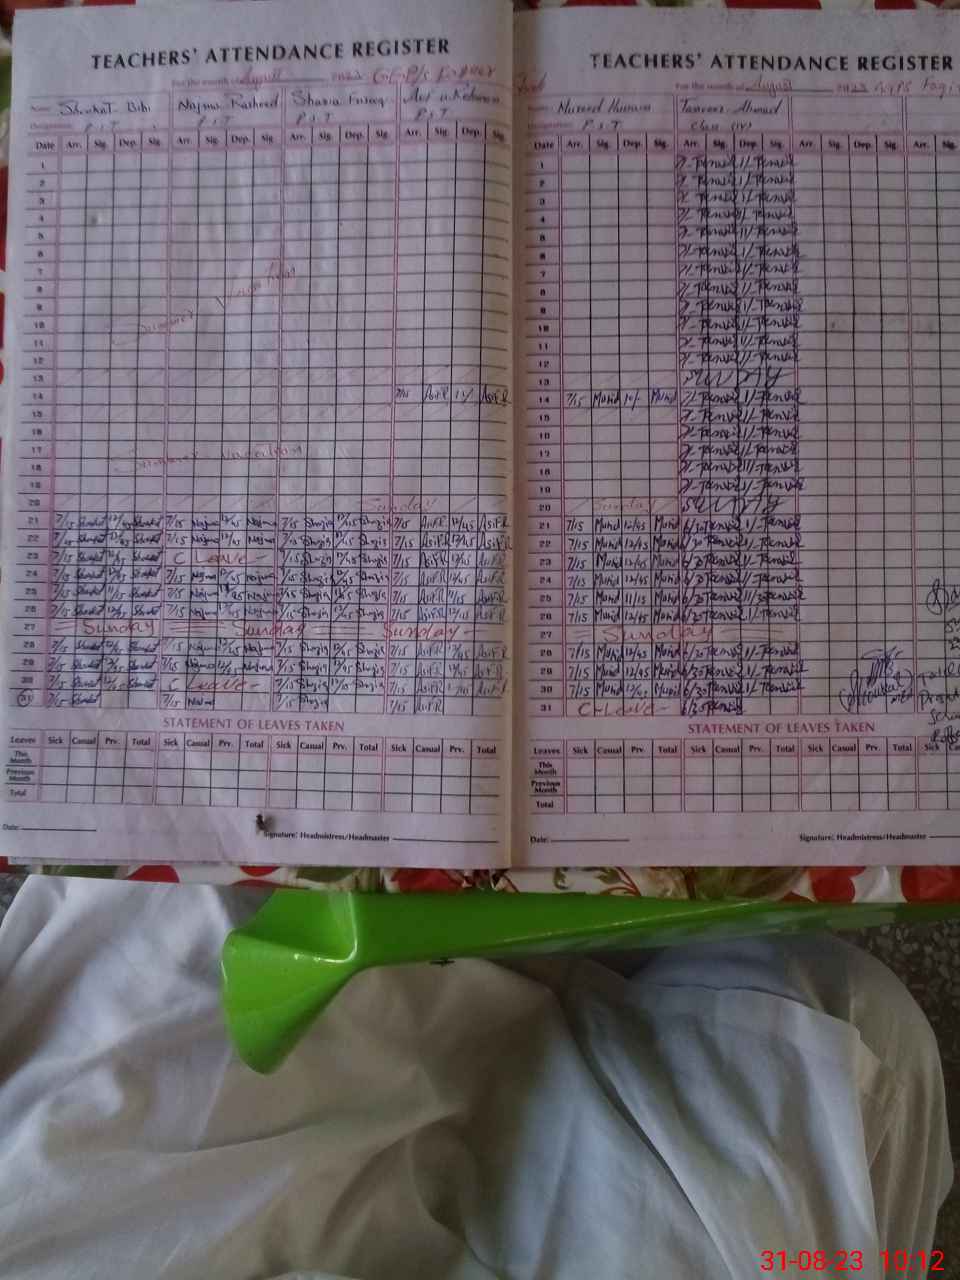 TEACHERS' ATTENDANCE REGISTER
For the month of August 2023
Name Shoukat Bibi Najma Rasheed Shazia Farooq
Designation P.S.T P.S.T P.S.T P.S.T
Date Arr. Sig. Dep. Sig. Arr. Sig. Dep. Sig. Arr. Sig. Dep. Sig. Arr. Sig. Dep. Sig.
1
2
3
4
5
6
7
8
9
10
11
12
13
Summer Vacation
14 7/15 Asif.R 11/ Asif.R
15
16
17
18
19
Summer Vacation
20 Sunday
21 7/15 Shoukat 12/45 Shoukat 7/15 Najma 12/45 Najma 7/15 Shazia 12/45 Shazia 7/15 Asif.R 12/45 Asif.R
22 7/15 Shoukat 12/45 Shoukat 7/15 Najma 12/45 Najma 7/15 Shazia 12/45 Shazia 7/15 Asif.R 12/45 Asif.R
23 7/15 Shoukat 12/45 Shoukat C Leave 7/15 Shazia 12/45 Shazia 7/15 Asif.R 12/45 Asif.R
24 7/15 Shoukat 12/45 Shoukat 7/15 Najma 12/45 Najma 7/15 Shazia 12/45 Shazia 7/15 Asif.R 12/45 Asif.R
25 7/15 Shoukat 11/15 Shoukat 7/15 Najma Najma 7/15 Shazia Shazia 7/15 Asif.R Asif.R
26 7/15 Shoukat 12/45 Shoukat 7/15 Najma 12/45 Najma 7/15 Shazia 12/45 Shazia 7/15 Asif.R 12/45 Asif.R
27 Sunday Sunday Sunday
28 7/15 Shoukat 12/45 Shoukat 7/15 Najma 12/45 Najma 7/15 Shazia 12/45 Shazia 7/15 Asif.R 12/45 Asif.R
29 7/15 Shoukat 12/45 Shoukat 7/15 Najma 12/45 Najma 7/15 Shazia 12/45 Shazia 7/15 Asif.R 12/45 Asif.R
30 7/15 Shoukat 12/45 Shoukat C Leave 7/15 Shazia 12/45 Shazia 7/15 Asif.R 12/45 Asif.R
31 7/15 Shoukat 7/15 Najma 7/15 Shazia 7/15 Asif.R
STATEMENT OF LEAVES TAKEN
Leaves Sick Casual Prv. Total Sick Casual Prv. Total Sick Casual Prv. Total Sick Casual Prv. Total
This Month
Previous Month
Total
Date: Signature: Headmistress/Headmaster
TEACHERS' ATTENDANCE REGISTER
For the month of August 2023 GGPS
Name: Mureed Hussain Tanveer Ahmad
Designation: P.S.T Class (IV)
Date Arr. Sig. Dep. Sig. Arr. Sig. Dep. Sig. Arr. Sig. Dep. Sig. Arr. Sig.
1 7/- Tanveer 11/- Tanveer
2 7/- Tanveer 11/- Tanveer
3 7/- Tanveer 11/- Tanveer
4 7/- Tanveer 11/- Tanveer
5 7/- Tanveer 11/- Tanveer
6 7/- Tanveer 11/- Tanveer
7 7/- Tanveer 11/- Tanveer
8 7/- Tanveer 11/- Tanveer
9 7/- Tanveer 11/- Tanveer
10 7/- Tanveer 11/- Tanveer
11 7/- Tanveer 11/- Tanveer
12 7/- Tanveer 11/- Tanveer
13 SUNDAY
14 7/15 Murid Murid 7/- Tanveer 11/- Tanveer
15 7/- Tanveer 11/- Tanveer
16 7/- Tanveer 11/- Tanveer
17 7/- Tanveer 11/- Tanveer
18 7/- Tanveer 11/- Tanveer
19 7/- Tanveer 11/- Tanveer
20 Sunday SUNDAY
21 7/15 Murid 12/45 Murid 6/30 Tanveer 1/- Tanveer
22 7/15 Murid 12/45 Murid 6/30 Tanveer 1/- Tanveer
23 7/15 Murid 12/45 Murid 6/30 Tanveer 1/- Tanveer
24 7/15 Murid 12/45 Murid 6/30 Tanveer 1/- Tanveer
25 7/15 Murid 11/15 Murid 6/30 Tanveer 1/- Tanveer
26 7/15 Murid 12/45 Murid 6/30 Tanveer 1/- Tanveer
27 Sunday
28 7/15 Murid 12/45 Murid 6/30 Tanveer 1/- Tanveer
29 7/15 Murid 12/45 Murid 6/30 Tanveer 1/- Tanveer
30 7/15 Murid 12/45 Murid 6/30 Tanveer 1/- Tanveer
31 C-Leave 6/30 Tanveer
STATEMENT OF LEAVES TAKEN
Leaves Sick Casual Prv. Total Sick Casual Prv. Total Sick Casual Prv. Total Sick
This Month
Previous Month
Total
Date: Signature: Headmistress/Headmaster
31-08-23 10:12